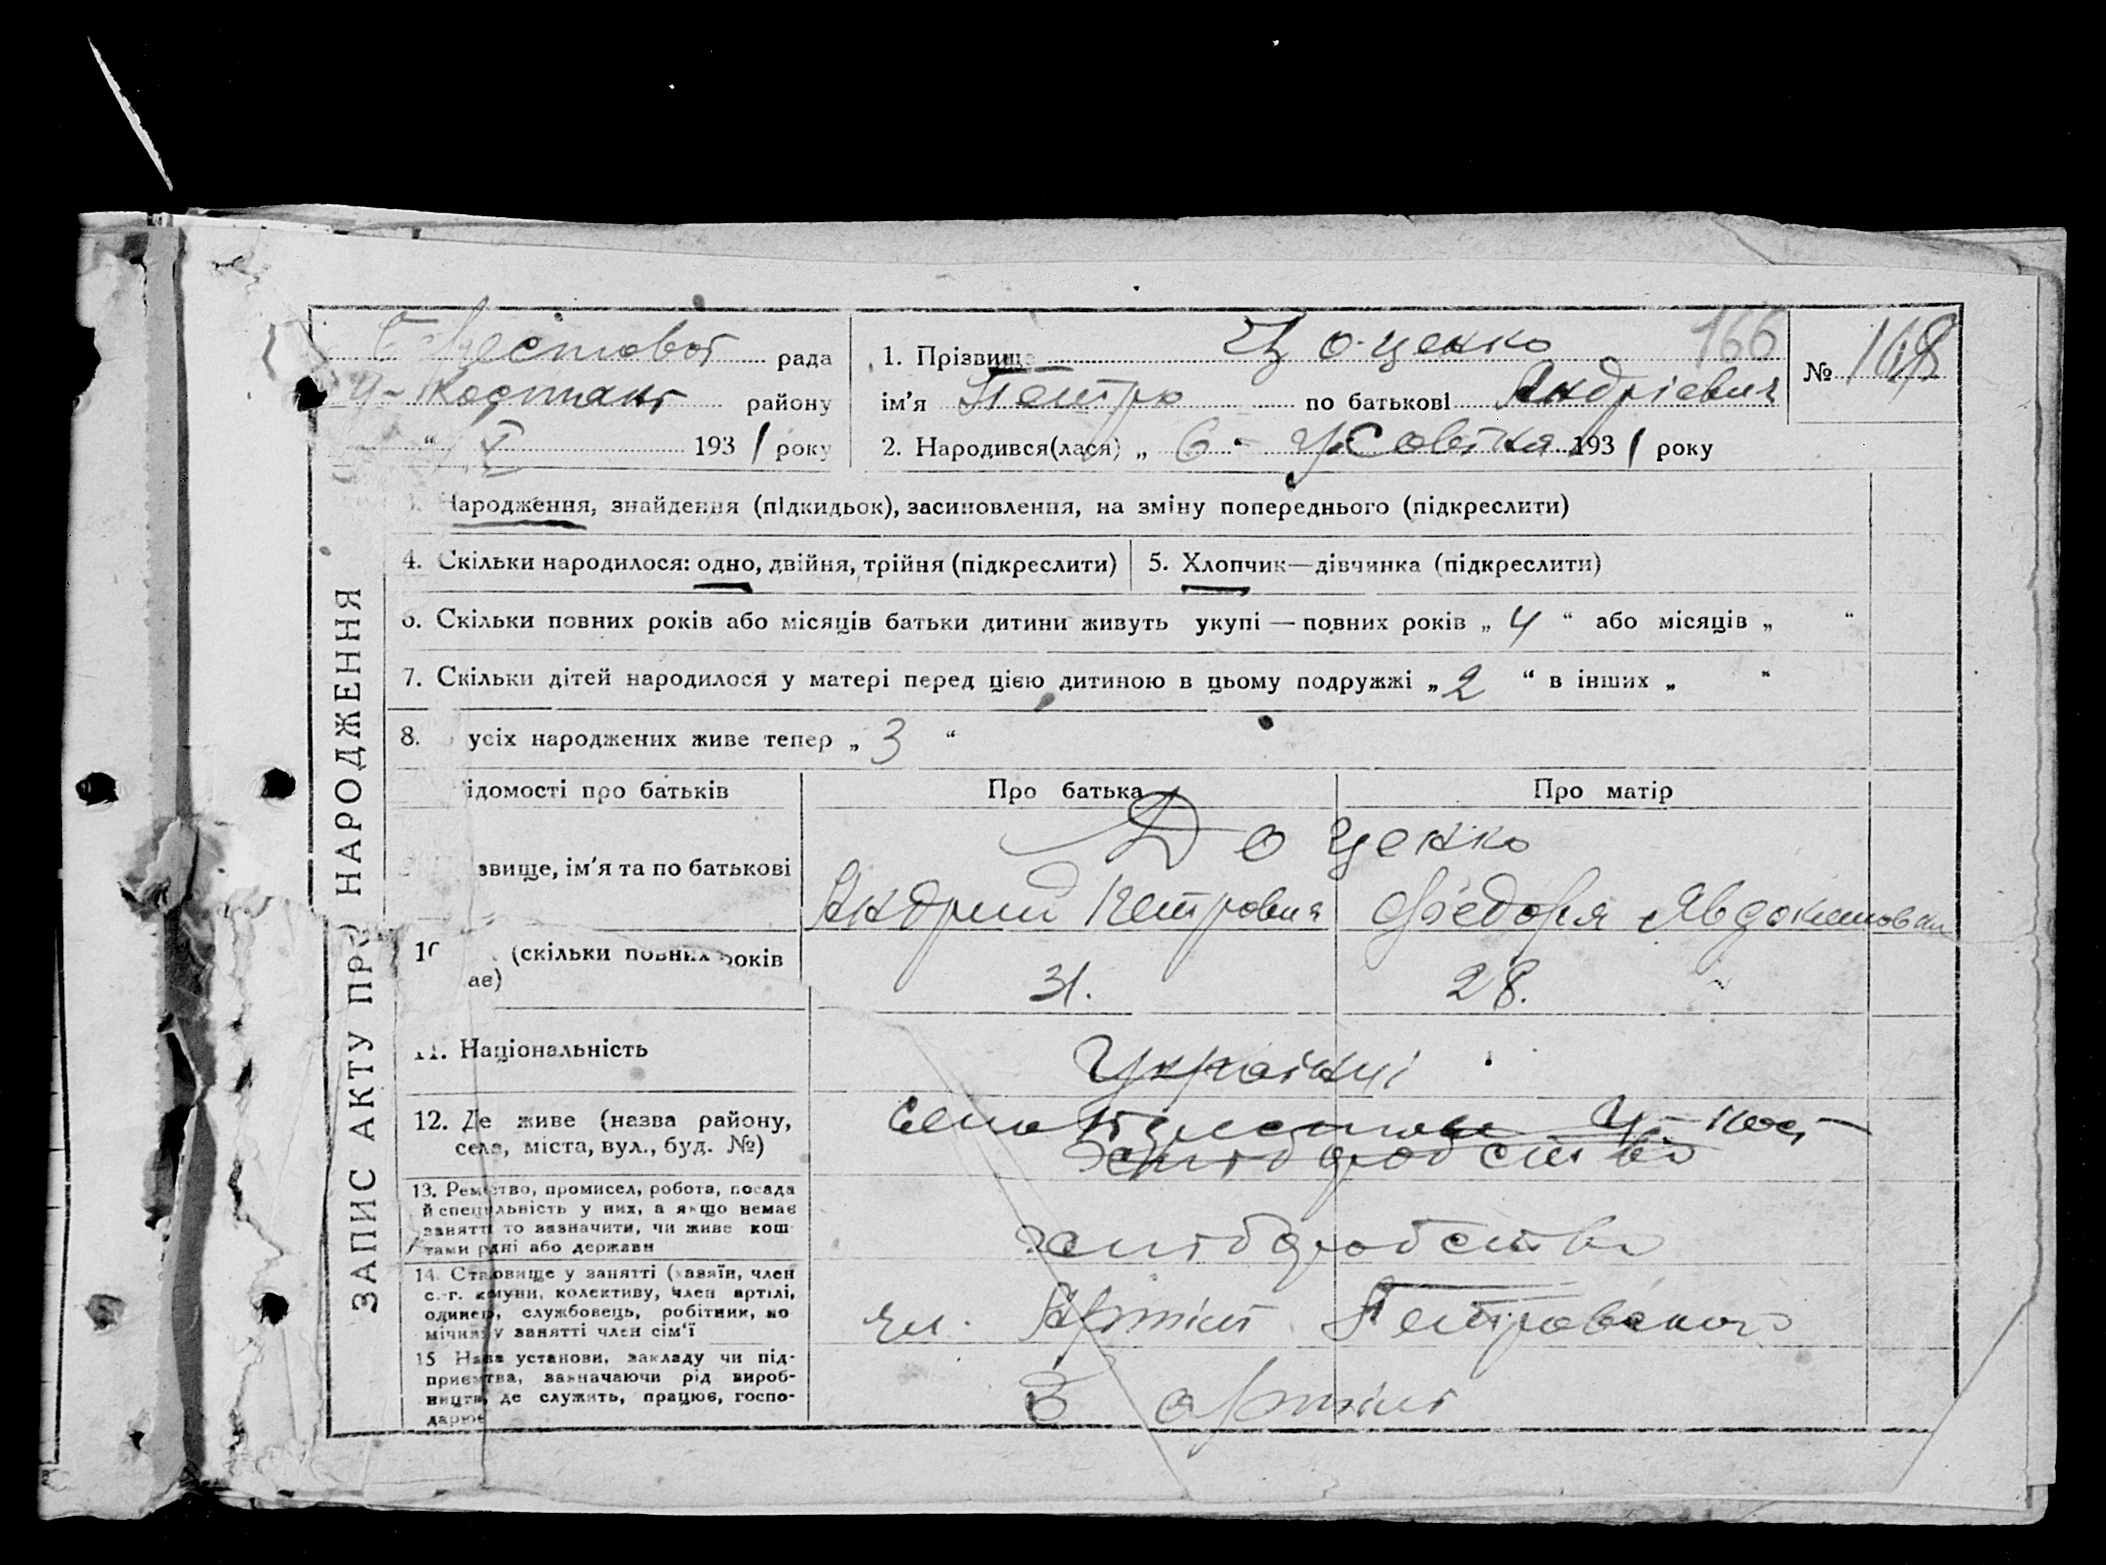 рада
района 
1. Прізвище Доценко 166
№ 168
району
ім'я Петро по батькові Андрієвич
" X 1931 року
2. Народився(лася) „ 6 - 1931 року
Народження, знайдення (підкидьок), засиновлення, на зміну попереднього (підкреслити)
4. Скільки народилося: одно, двійня, трійня (підкреслити)
5. Хлопчик—дівчинка (підкреслити)
6. Скільки повних років або місяців батьки дитини живуть укупі — повних років „ 4 “ або місяців „ “
7. Скільки дітей народилося у матері перед цією дитиною в цьому подружжі „ 2 “ в інших „ “
8. усіх народжених живе тепер „ 3 “
ідомості про батьків
Про батька
Про матір
Доценко
звище, ім'я та по батькові
Андрий Петрович
Федора Явдокимовна
10 (скільки повних років
ає)
31.
28.
11. Національність
Українці
12. Де живе (назва району,
села, міста, вул., буд. №)
село
хліборобство
13. Ремество, промисел, робота, посада
й спеціяльність у них, а якщо немає
заняття то зазначити, чи живе кош-
тами рідні або держави
хліборобство
14. Становище у занятті (хазяїн, член
с.-г. комуни, колективу, член артілі,
одинець, службовець, робітник, по
мічний у занятті член сім'ї
чл. Артілі Петровского
15 Назва установи, закладу чи під-
приємства, зазначаючи рід вироб-
ництва, де служить, працює, госпо-
дарює
В артілі
ЗАПИС АКТУ ПРО НАРОДЖЕННЯ